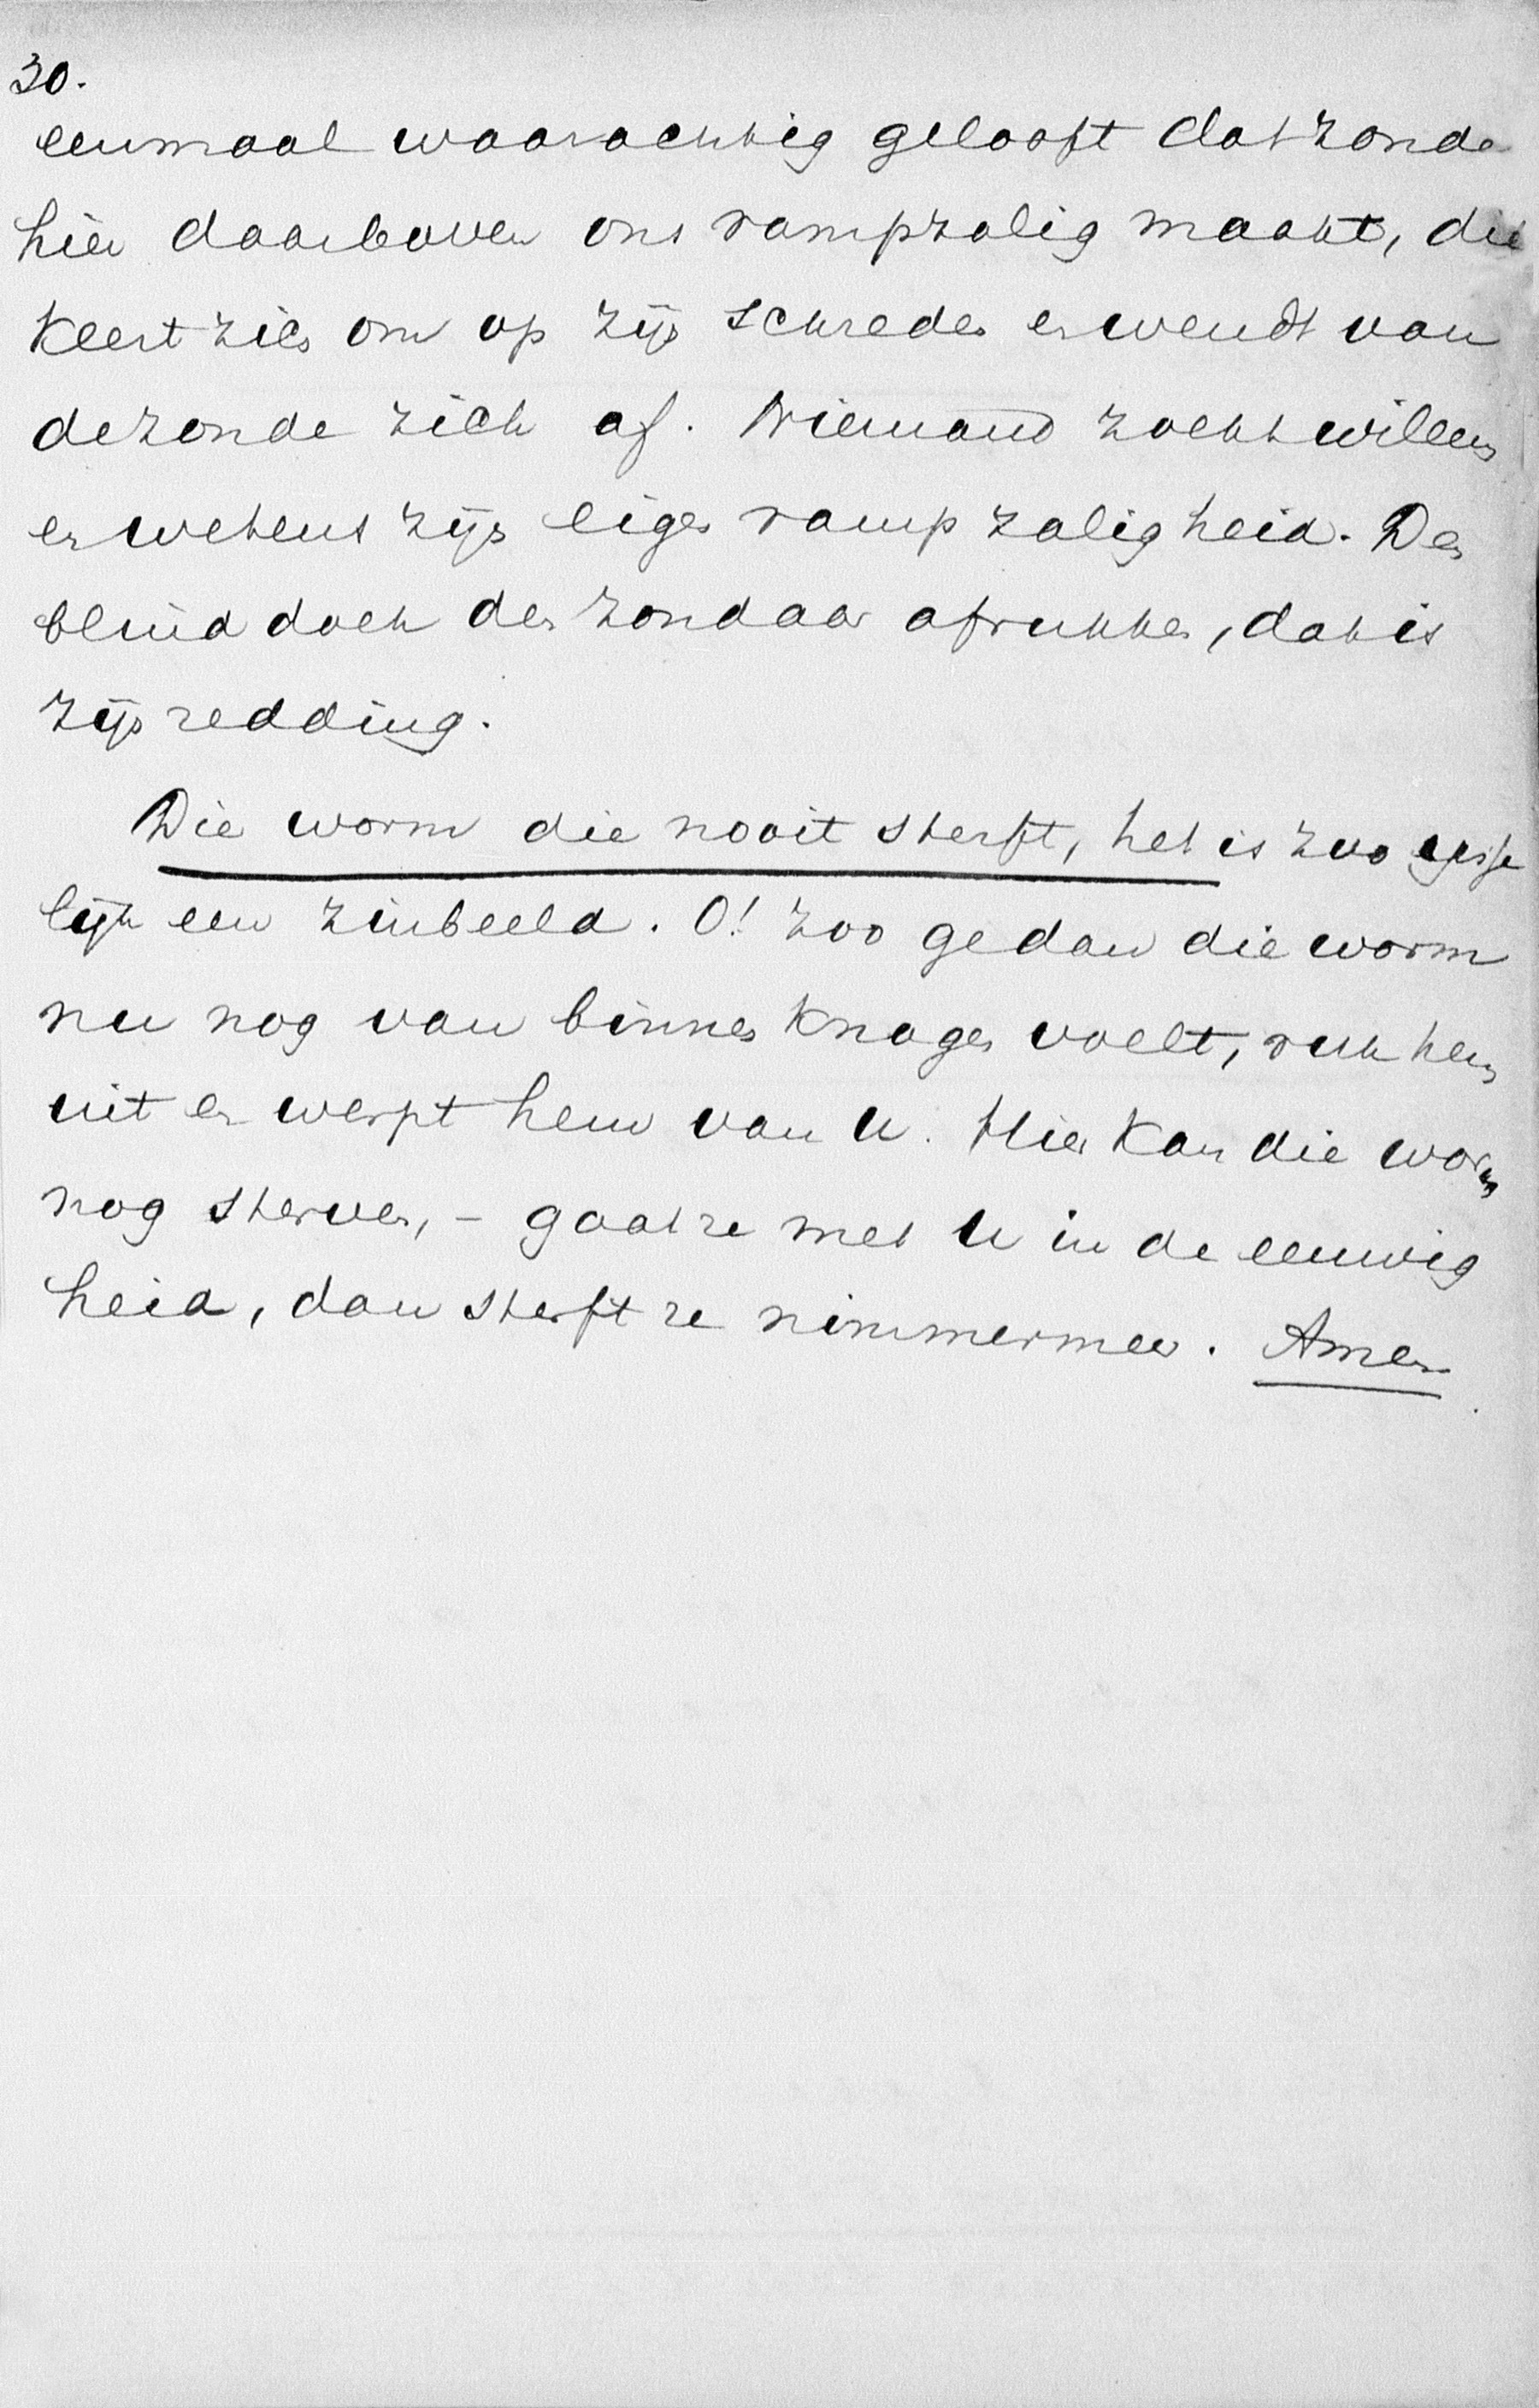 30.
eenmaal waarachtig gelooft dat zonde
hier daarboven ons rampzalig maakt, die
keert zich om op zijn schreden en wendt van
de zonde zich af. Niemand zoekt willens
en wetens zijn eigen rampzaligheid. Den
blinddoek den zondaar afrukken, dat is
zijn redding.
Die worm die nooit sterft, het is zoo ijse
lijk een zinbeeld. O! Zoo ge dan die worm
nu nog van binnen knagen voelt, ruk hem
uit en werpt hem van U. Hier kan die worm
nog sterven, - gaat ze met U in de eeuwig
heid, dan sterft ze nimmermeer. Amen